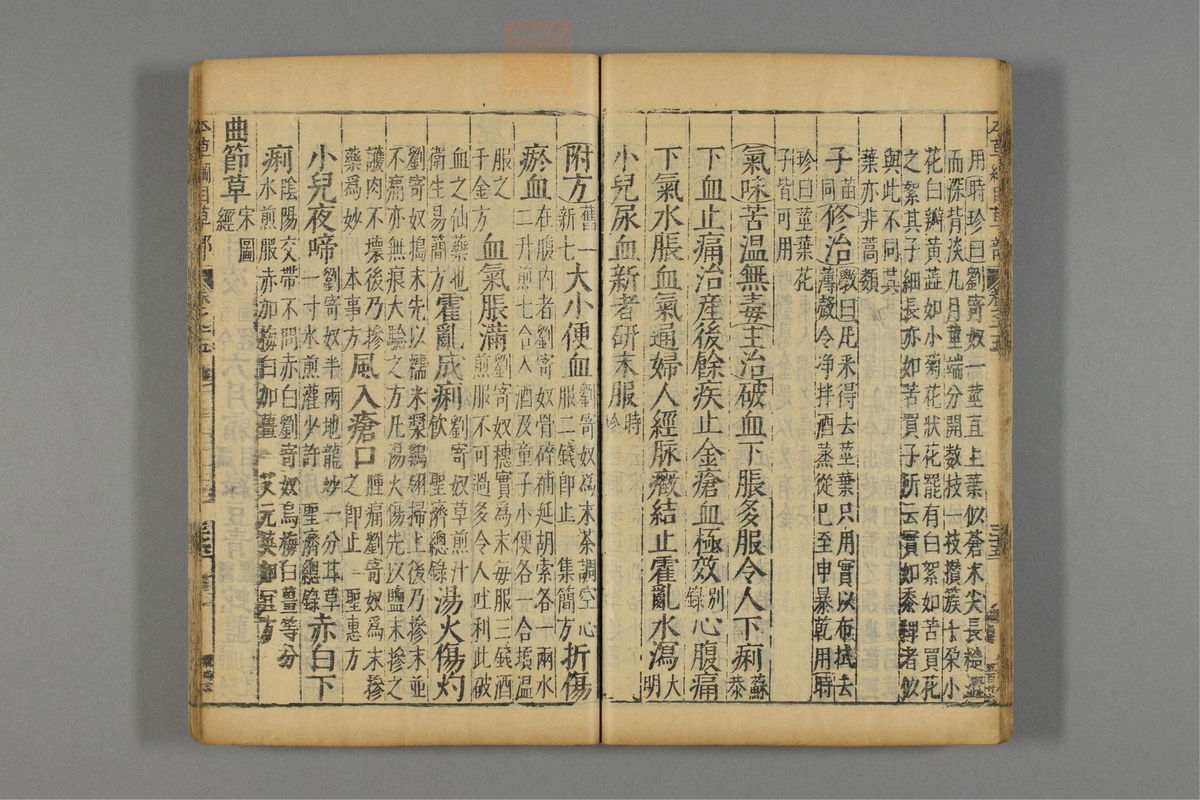 用時珍曰劉寄奴一莖直上葉似蒼朮尖長糙澀
而深背淡九月莖端分開數枝一枝攢簇十朶小
花白瓣黃蕋如小菊花狀花罷有白絮如苦蕒花
之絮其子細長亦如苦蕒子所云實如黍稗者似
與此不同其
葉亦非蒿類
子苗同修治斆曰凡采得去莖葉只用實以布拭去
薄殼令净拌酒蒸從巳至申暴乾用時
珍曰莖葉花
子皆可用
氣味苦溫無毒主治破血下脹多服令人下痢蘇恭
下血止痛治產後餘疾止金瘡血極效别錄心腹痛
下氣水脹血氣通婦人經脉癥結止霍亂水瀉大明
小兒尿血新者研末服時珍
附方舊一新七大小便血劉寄奴爲末茶調空心服二錢卽止集簡方折傷
瘀血在腹内者劉寄奴骨碎補延胡索各一兩水二升煎七合入酒及童子小便各一合頓温
服之千金方血氣脹滿劉寄奴穗實爲末每服三錢酒煎服不可過多令人吐利此破
血之仙藥也衛生易簡方霍亂成痢劉寄奴草煎汁飲聖濟總錄湯火傷灼
劉寄奴搗末先以糯米漿鷄翎掃上後乃摻末並
不痛亦無痕大驗之方凡湯火傷先以鹽末摻之
護肉不壞後乃摻藥爲妙本事方風入瘡口腫痛劉寄奴爲末摻之卽止聖惠方
小兒夜啼劉寄奴半兩地龍炒一分甘草一寸水煎灌少許聖濟總錄赤白下
痢陰陽交帶不問赤白劉寄奴烏梅白薑等分水煎服赤加梅白加薑艾元英如宜方
曲節草宋圖經
本草綱目草部